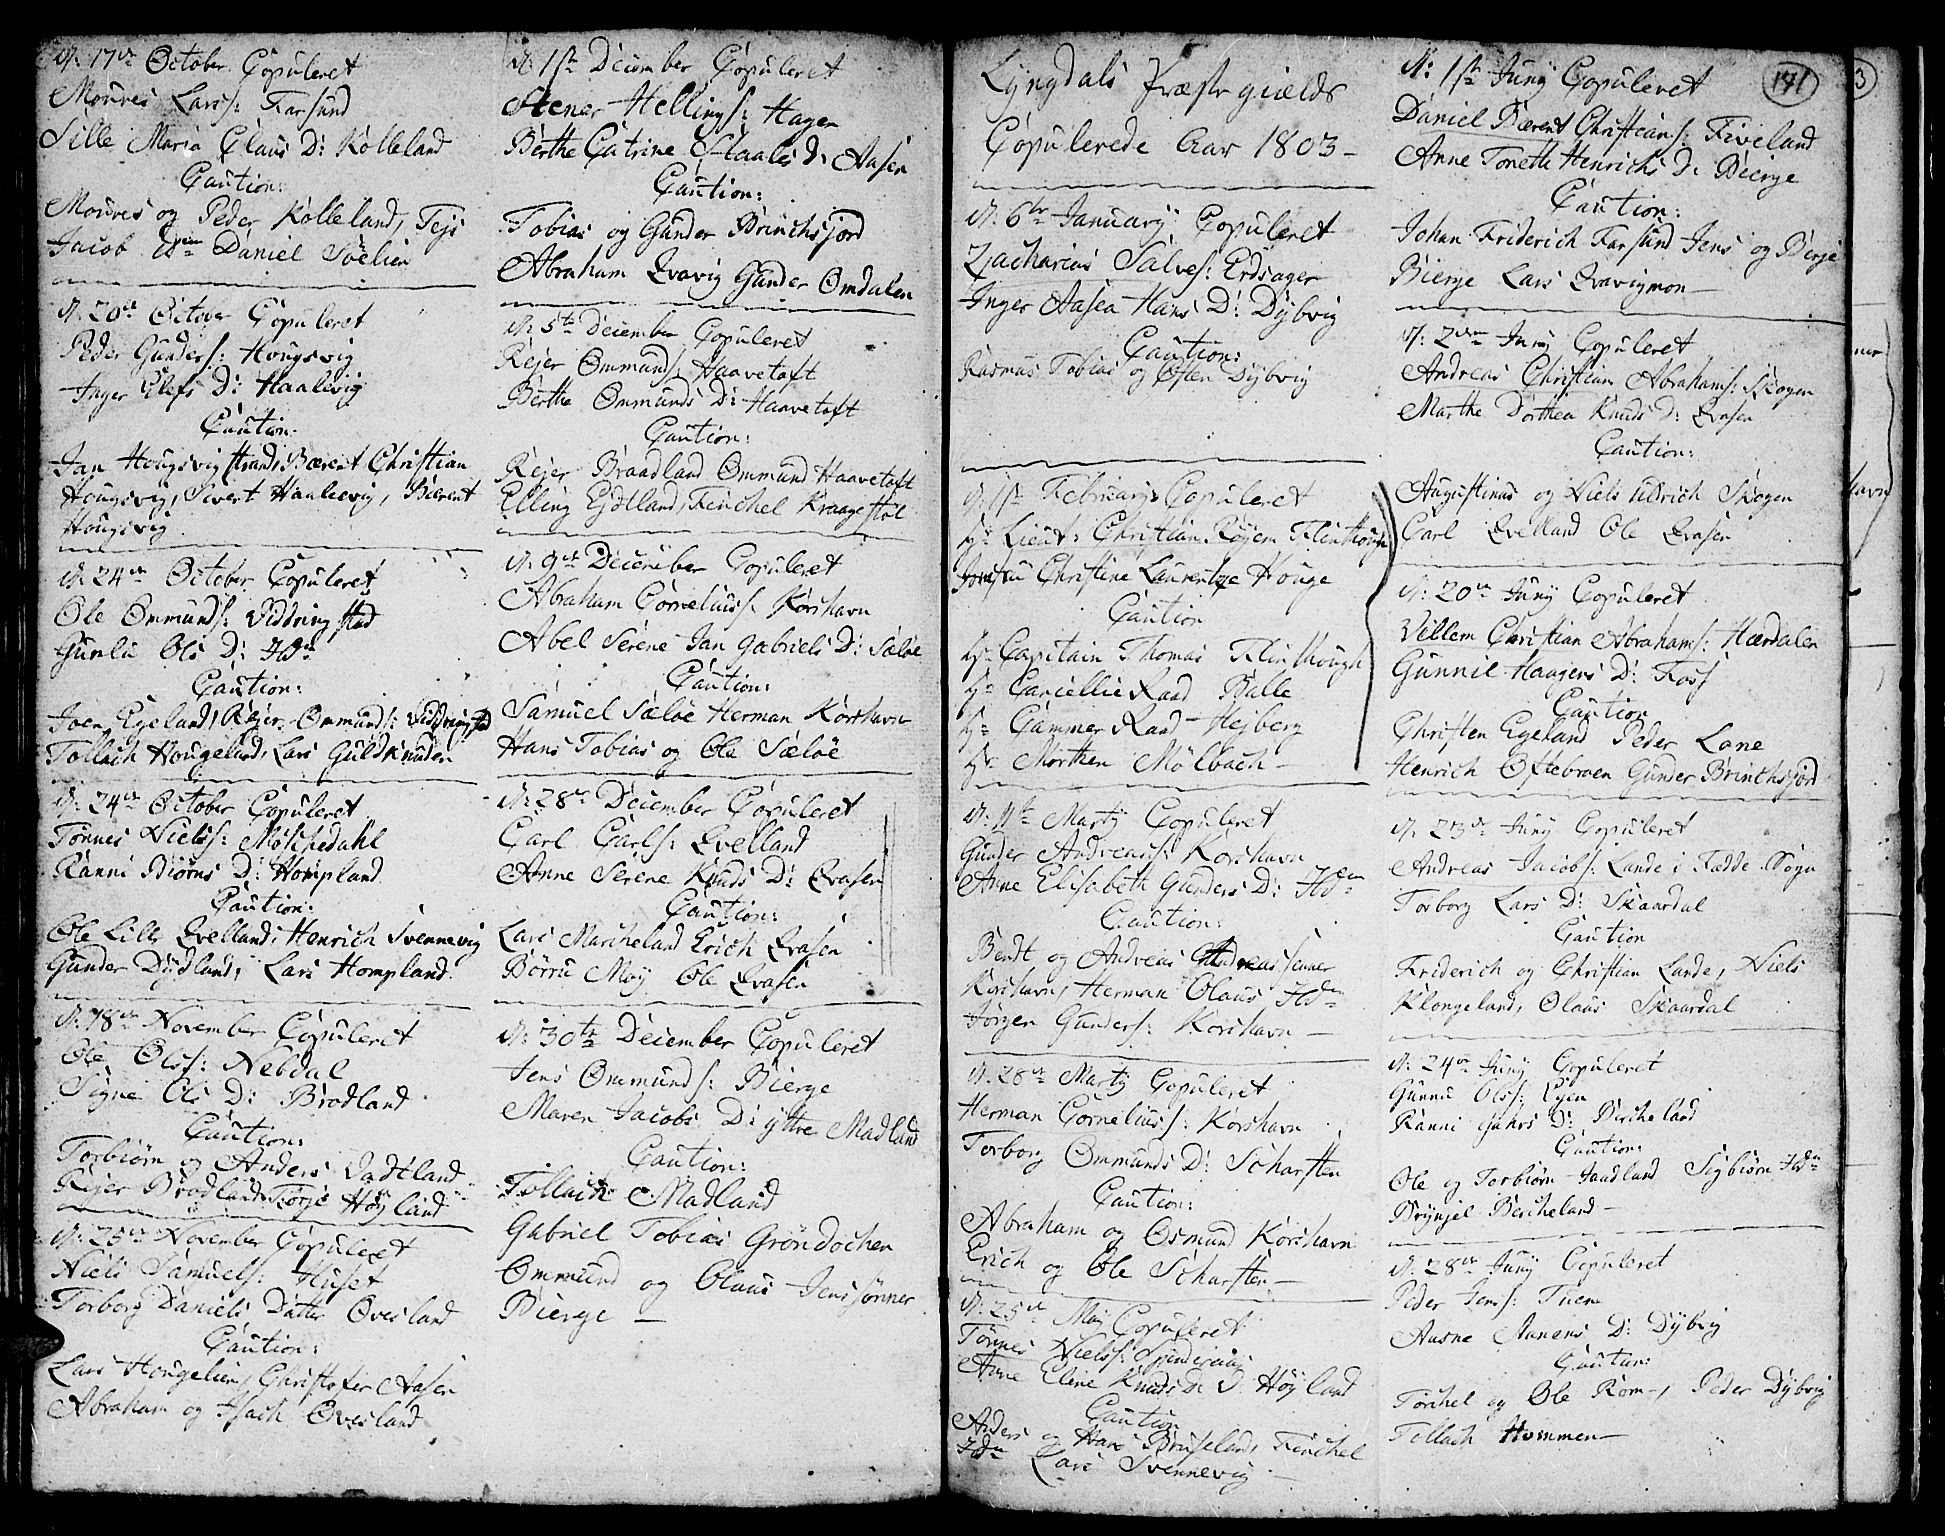 d: 17de October Copuleret
Moures Lars S: Farsund
Sille Maria Claus D: Kolleland
Caution:
Moures og Peder Kolleland, Tejs
Jacob Daniel Söelien
d: 20de October Copuleret
Peder Gunders: Hougsvig
Inger Olefs D: Haalevig
Caution:
Jan Hougsvig Strand, Bærent Christian
Hougsvig, Sivert Haalevig, Bærent
Hougsvig
d: 24de October Copuleret
Ole Ommunds: Viddringstad
Gunlu Ols D: Ibdm
Caution:
Joen Egeland, Rejer Ommunds: Viddringstad
Tollach Hougeland, Lars Guldknuden
d: 24de October Copuleret
Tönnes Niels: Möschedahl
Ranni Biörns D: Hompland
Caution:
Ole Lille Qvelland, Henrich Svennevig
Gunder Dydland, Lars Hompland
d: 18de November Copuleret
Ole Ols: Nebdal
Signe Ols D: Brodland
Caution:
Torbiörn og Anders Vadtland
Rejer Brodland Torje Höyland
d: 25de November Copuleret
Niels Samuels: Huset
Torborg Daniels Datter Ovesland
Caution:
Lars Hougelien, Christofer Aasen
Abraham og Isach Ovesland
d: 1ste December Copuleret
Stener Hellings: Hagen
Berthe Catrine Staales D: Aasen
Caution:
Tobias og Gunder Brinchsjord
Abraham Qvavig Gunder Omdalen
d: 5te December Copuleret
Rejer Ommunds: Haavetoft
Berthe Ommunds D: Haavetoft
Caution:
Rejer Braadland Ommund Haavetoft
Elling Eydtland, Fenchel Kraagestöl
d: 9de December Copuleret
Abraham Cornelius: Korshavn
Abel Serene Jan Gabriels D: Sælöe
Caution:
Samuel Sælöe Herman Korshavn
Hans Tobias og Ole Sælöe
d: 28de December Copuleret
Carl Carls: Qvelland
Anne Serene Knuds D: Qvasen
Caution:
Lars Marcheland Erich Qvasen
Börru Moy Ole Qvasen
d: 30te December Copuleret
Jens Ommunds: Bierge
Maren Jacobs D: ytre Madland
Caution:
Tollach Madland
Gabriel Tobias Gröndochen
Ommund og Olaus Jenssönner
Bierge
Lyngdals Præste gields
Copulerede Aar 1803
d: 6te January Copuleret
Zacharias Salves: Erdsager
Inger Aasea Hans D: Dybvig
Caution:
Rasmus Tobias og Osten Dybvig
d: 1ste February Copuleret
Hr Lieut: Christian Röyem Flinthough
Jomfru Christine Laurentze Houge
Caution
Hr Capitain Thomas Flinthough
Hr Cancellie Raad Balle
Hr Cammer Raad Hejberg
Hr Morthen Mölbach
d: 11te Martj Copuleret
Gunder Andreas: Korshavn
Anne Elisabeth Gunders D: Ibdem
Caution:
Bendt og Andreas Andreassenner
Korshavn, Herman Olaus Ibdm
Jörgen Gunders: Korshavn
d: 28de Martj Copuleret
Herman Cornelius: Korshavn
Torborg Ommunds D: Scharsten
Caution:
Abraham og Osmund Korshavn
Erich og Ole Scharsten
d: 25de Maj Copuleret
Tönnes Niels:
Anne Eline Knuds D: Höyland
Caution
Anders og Hans Bruseland, Fenchel
Ibdm Lars Svennevig
171
d: 1ste Juny Copuleret
Daniel Bærent Christians: Fiveland
Anne Tonette Henrichs D: Bierge
Caution:
Johan Friderich Farsund Jens og Börje
Bierge Lars Qvavigmon
d: 2den Juny Copuleret
Andreas Christian Abrahams: Skogen
Marthe Dorthea Knuds D: Qvasen
Caution:
Augustinus og Niels Uldrich Skogen
Carl Qvelland Ole Qvasen
d: 20de Juny Copuleret
Villem Christian Abrahams: Hærdalen
Gunnil Haagens D: Foss
Caution
Christen Egeland Peder Lone
Henrich Oftebroen Gunder Brinchsjord
d: 23de Juny Copuleret
Andreas Jacobs: Lande i Fædde Sogn
Torborg Lars D: Skaardal
Caution
Friderich og Christian Lande, Niels
Klongeland, Olaus Skaardal
d: 24de Juny Copuleret
Gunnu Ols: Eyen
Ranni Gahrs D: Bercheland
Caution:
Ole og Torbiörn Jaadland Sigbiörn Ibdm
Brynjel Bercheland
d: 28de Juny Copuleret
Peder Jens: Tuem
Aasne Aanens D: Dybvig
Caution:
Torchel og Ole Rom, Peder Dybvig
Tollach Hommen
3
havn